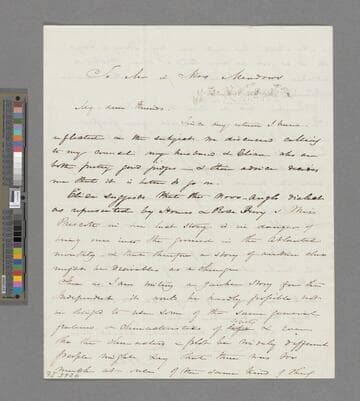 To Mr & Mrs Meadows
My dear Friends.
Since my return I have
reflected on the subject we discussed calling
to my counsel my husband & Eliza who are
both pretty good judges — & their advice
me that it is better to go on.
Eliza suggests that the Novo-Anglo dialect
as represented by Holmes & Rose Terry & Miss
Prescott in her last story is in danger of
being run into the ground in the Atlantic
monthly & that therefore a story of another class
might be desirable as a change.
Then as I am writing a Yankee Story for the
Independent it would be hardly possible not
in design to use some of the same general
features & characteristics of & even
tho the characters & plot be widely different
people might say that there was too
much at once of the same kind of thing